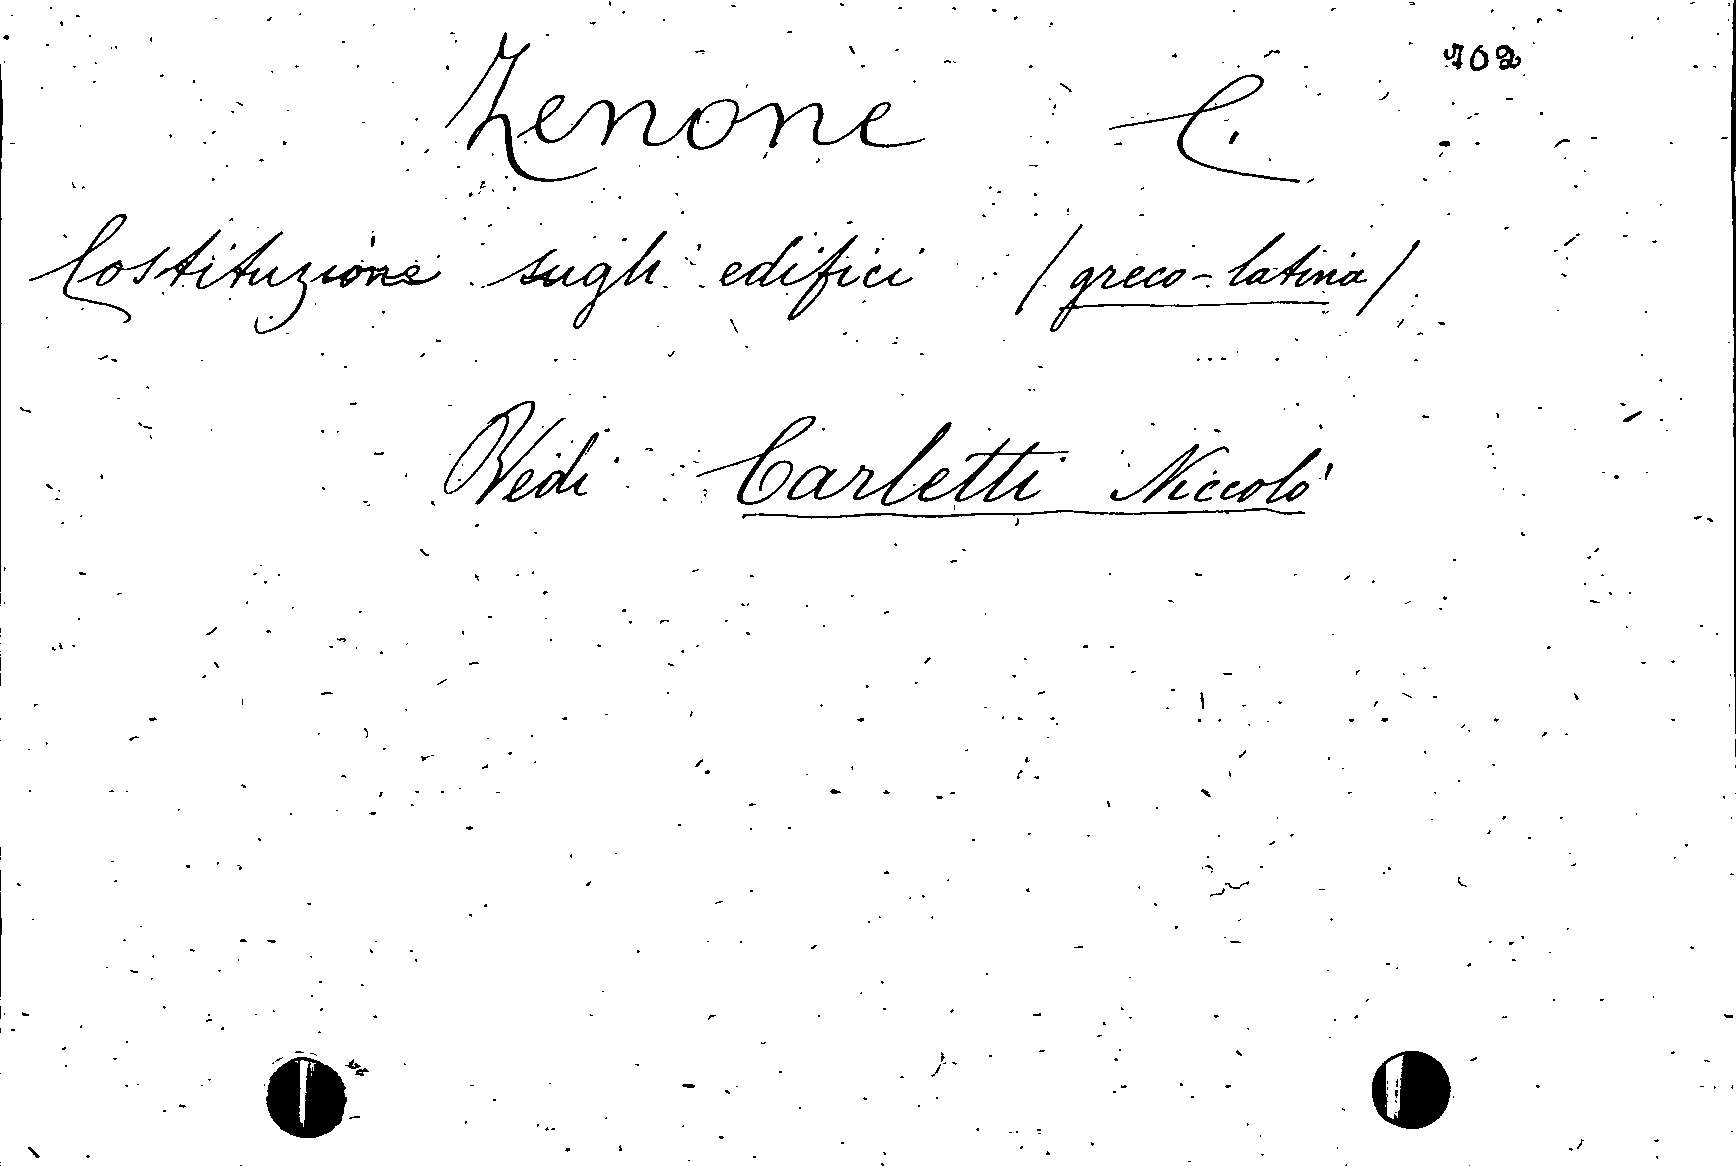 702
Zenone C.
Costituzione sugli edifici (greco-latina)
Vedi Carletti Niccolò